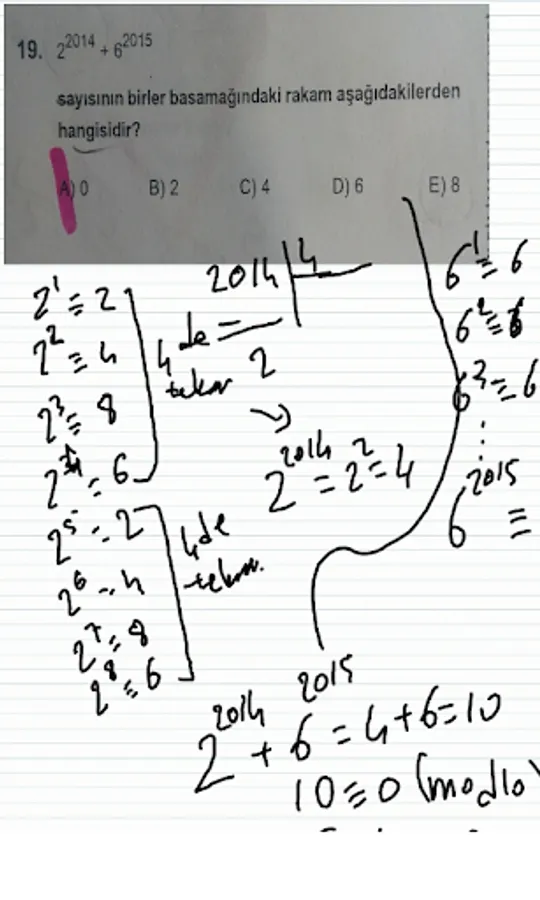 19. 2^2014 + 6^2015
sayısının birler basamağındaki rakam aşağıdakilerden
hangisidir?
A) 0 B) 2 C) 4 D) 6 E) 8
2^1 ≡ 2
2^2 ≡ 4
2^3 ≡ 8
2^4 ≡ 6
4 de
tekrar
2^5 ≡ 2
2^6 ≡ 4
2^7 ≡ 8
2^8 ≡ 6
4 de
tekrar.
2014 | 4
2
2^2014 ≡ 2^2 = 4
6^1 ≡ 6
6^2 ≡ 6
6^3 ≡ 6
⋮
6^2015 ≡
2^2014 + 6^2015 = 4+6=10
10 ≡ 0 (mod10)